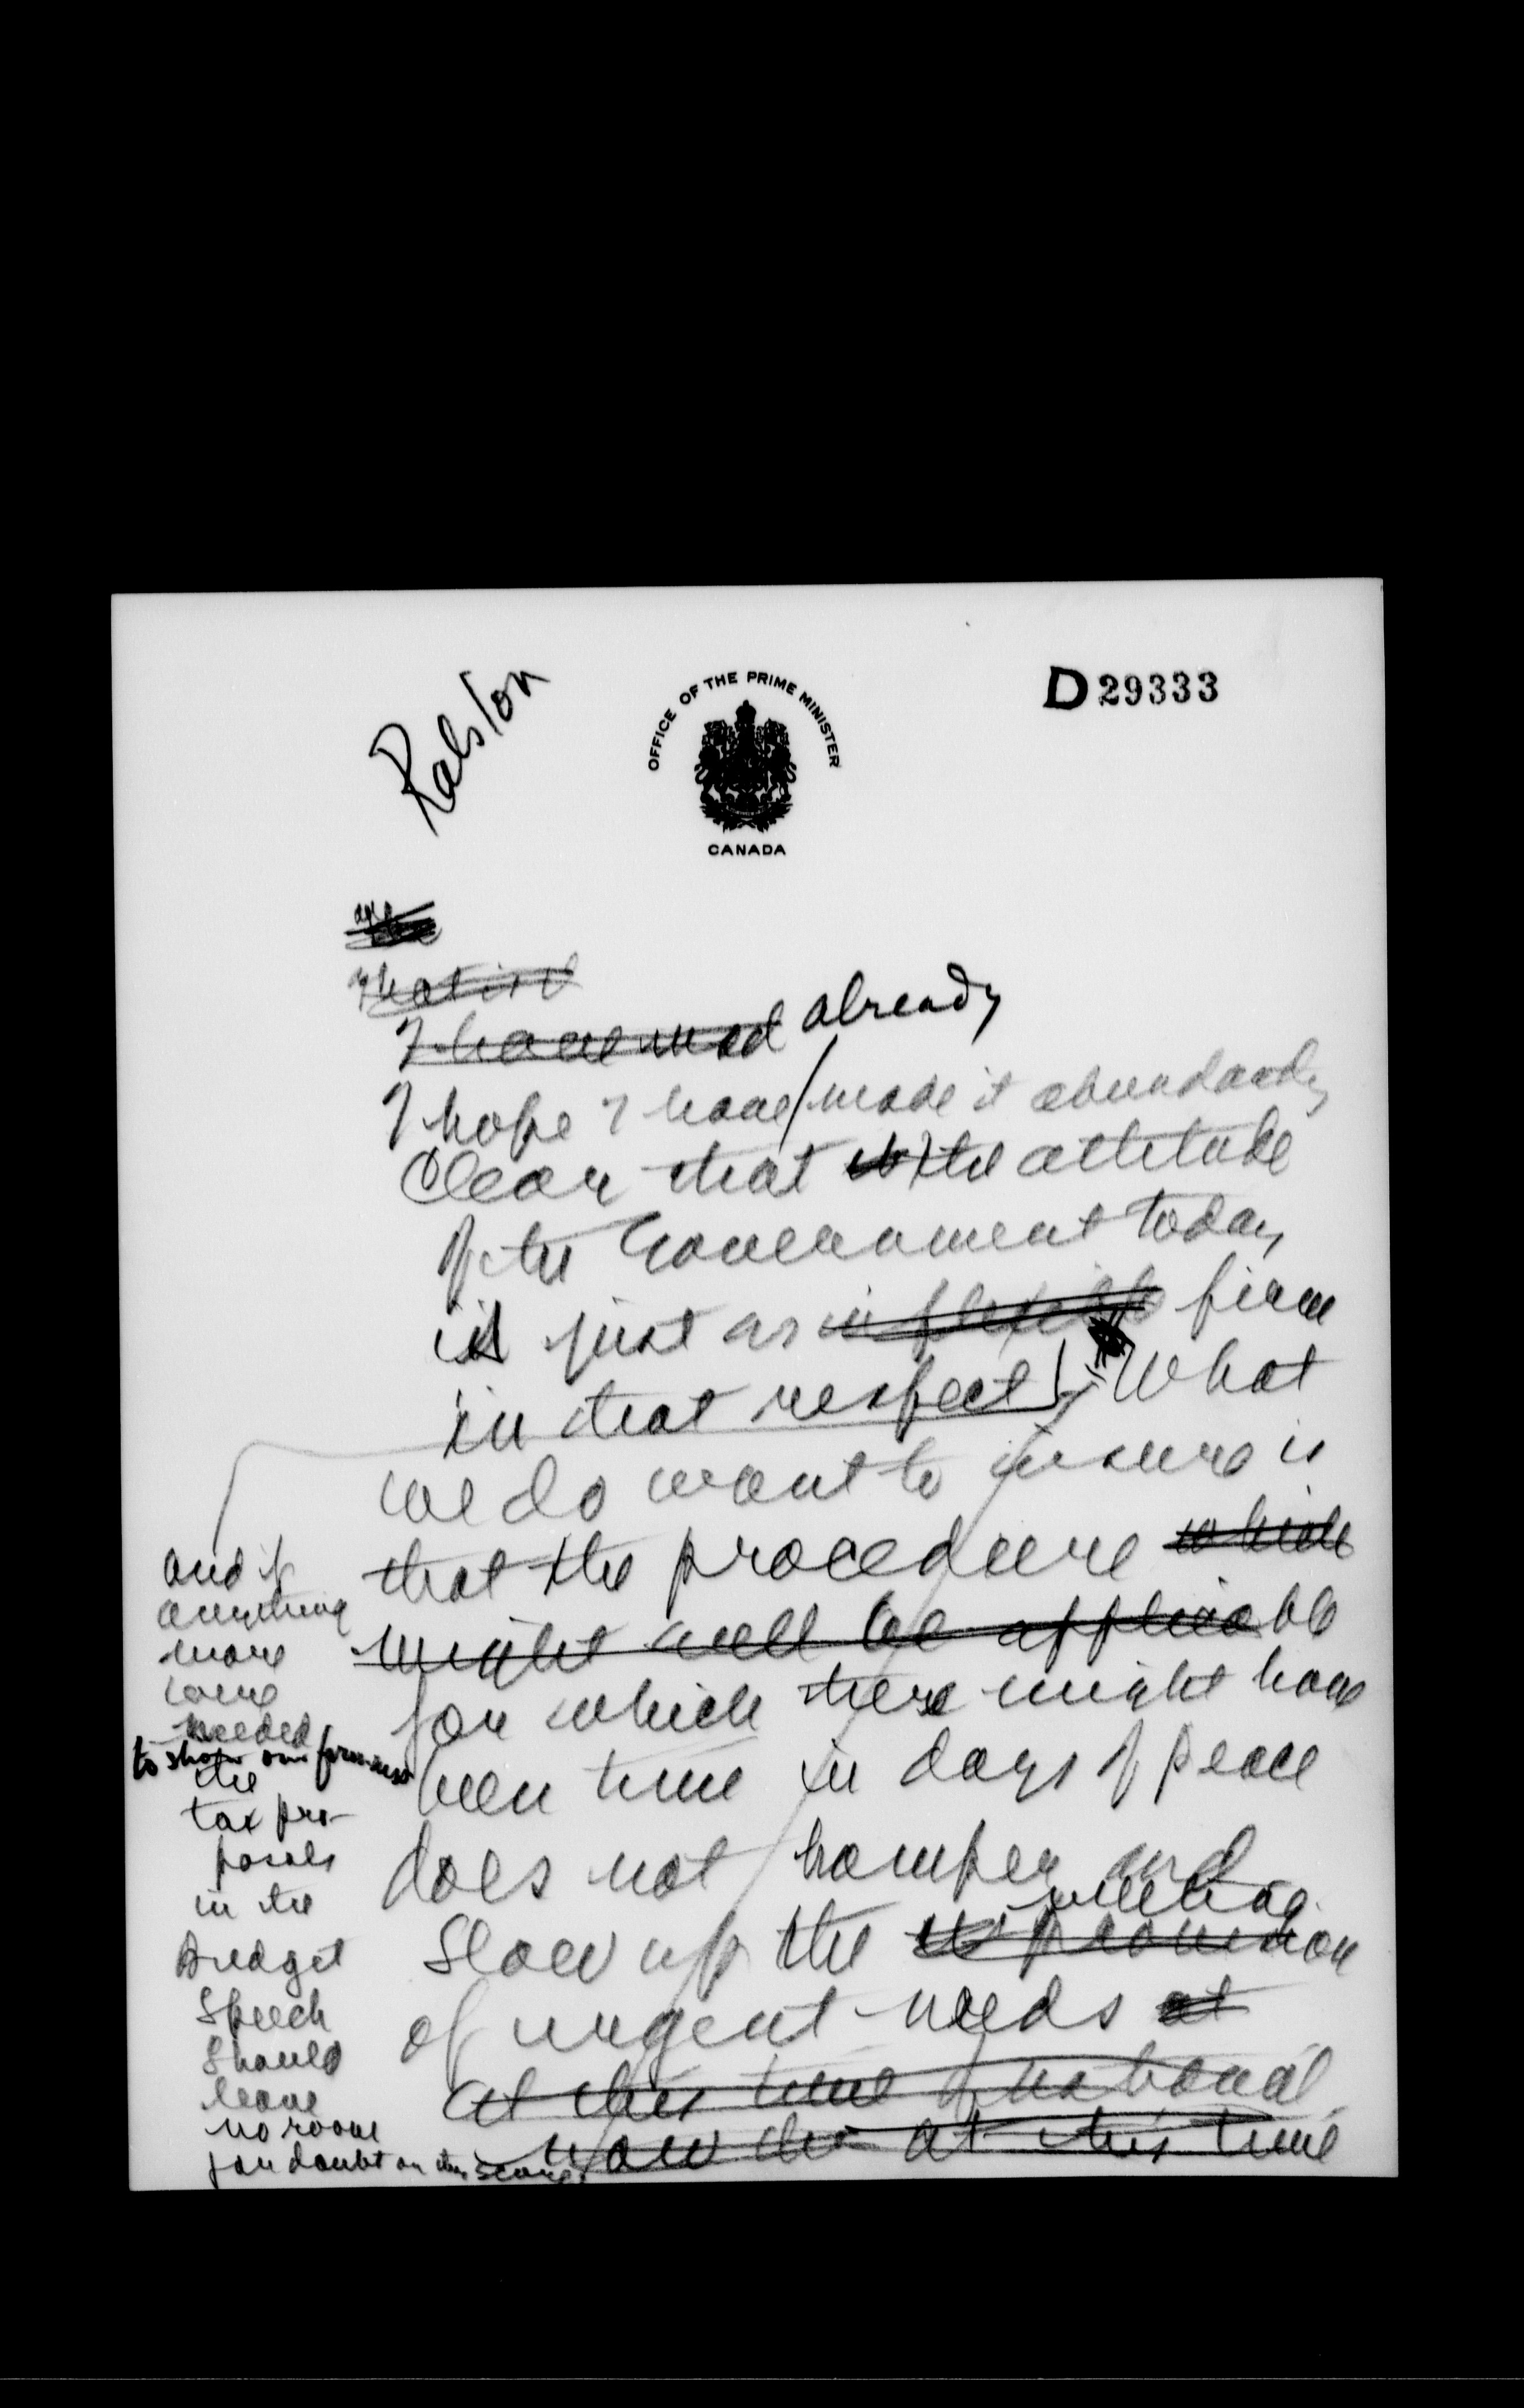 Ralston
OFFICE OF THE PRIME MINISTER
CANADA
D 29333
That is
I have mad already
I hope I have / made it abundantly
clear that the attitude
of the Government today
is just as inflexible firm
in that respect. What
we do want to insure is
that the procedure which
might well be applicable
for which there might have
been time in days of peace
does not hamper and
meeting
slow up the provision
of urgent needs at
at this time of national
now at this time
and if
anything
more
were
needed
to show our firmness
the
tax pro-
posals
in the
Budget
Speech
should
leave
no room
for doubt on this score.